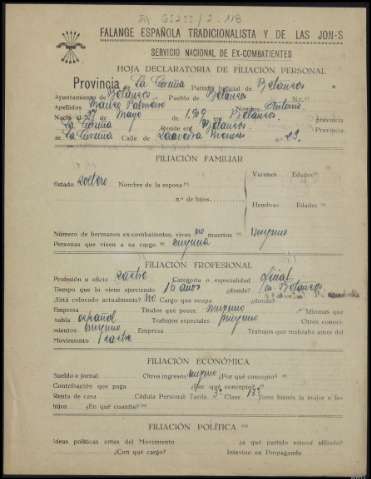 FALANGE ESPAÑOLA TRADICIONALISTA Y DE LAS JON-S
SERVICIO NACIONAL DE EX-COMBATIENTES
HOJA DECLARATORIA DE FILIACIÓN PERSONAL
Provincia La Coruña Partido Judicial de Betanzos
Ayuntamiento de Betanzos Pueblo de Betanzos
Apellidos Nombre Antonio
Nació el 27 de Mayo de Betanzos Provincia
La Coruña Reside en Betanzos Provincia
de La Coruña Calle de Saavedra Meneses n.º 29
FILIACIÓN FAMILIAR
Estado soltero Nombre de la esposa Varones Edades
n.º de hijos
Hembras Edades
Número de hermanos ex-combatientes, vivos no muertos ninguno
Personas que viven a su cargo ninguna
FILIACIÓN PROFESIONAL
Profesión u oficio sastre Categoría o especialidad oficial
Tiempo que lo viene ejerciendo 16 años ¿dónde? en Betanzos
¿Está colocado actualmente? No Cargo que ocupa ¿dónde?
Empresa Títulos que posee ninguno Idiomas que
habla español Trabajos especiales ninguno Otros conoci-
mientos ninguno Empresa Trabajos que realizaba antes del
Movimiento sastre
FILIACIÓN ECONÓMICA
Sueldo o jornal Otros ingresos ninguno ¿Por qué concepto?
Contribución que paga ¿Por qué concepto?
Renta de casa Cédula Personal: Tarifa Clase Tiene bienes la mujer o los
hijos ¿En qué cuantía?
FILIACIÓN POLÍTICA
Ideas políticas antes del Movimiento ¿a qué partido estuvo afiliado?
¿Con qué cargo? Intervino en Propaganda